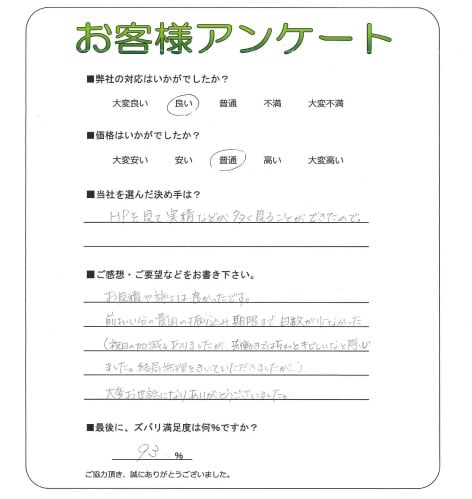 お客様アンケート
■弊社の対応はいかがでしたか？
大変良い 良い 普通 不満 大変不満
■価格はいかがでしたか？
大変安い 安い 普通 高い 大変高い
■当社を選んだ決め手は？
HPを見て実績などが多く見ることができたので。
■ご感想・ご要望などをお書き下さい。
お見積や施工は良かったです。
前払い分の費用のお振り込み期限まで日数が少なかった
(祝日の加減もありましたが、共働きではちょっとキビしいなと思い
ました。結局無理をきいていただきましたが…)
大変お世話になりありがとうございました。
■最後に、ズバリ満足度は何%ですか？
93 %
ご協力頂き、誠にありがとうございました。